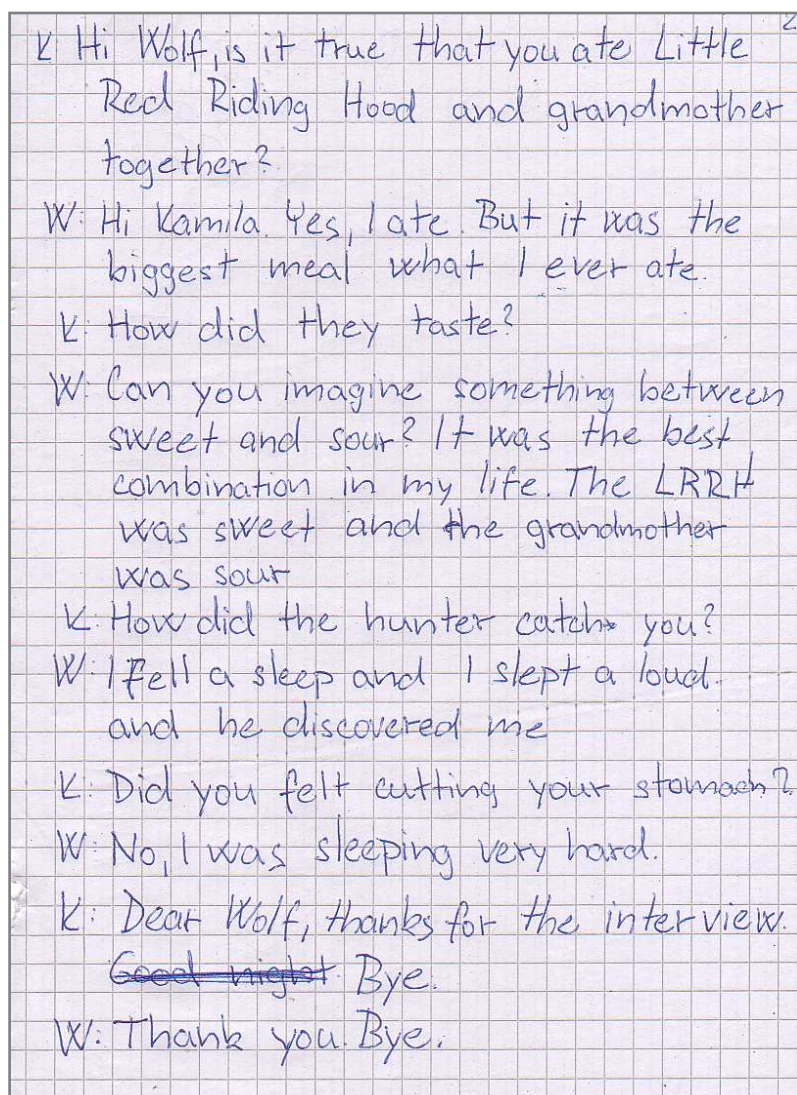 2
K Hi Wolf, is it true that you ate Little
Red Riding Hood and grandmother
together?
W: Hi Kamila. Yes, I ate. But it was the
biggest meal what I ever ate.
K: How did they taste?
W: Can you imagine something between
sweet and sour? It was the best
combination in my life. The LRRH
was sweet and the grandmother
was sour
K: How did the hunter catch you?
W: I fell a sleep and I slept a loud.
and he discovered me
K: Did you felt cutting your stomach?
W: No, I was sleeping very hard.
K: Dear Wolf, thanks for the interview.
Good night. Bye.
W: Thank you. Bye.